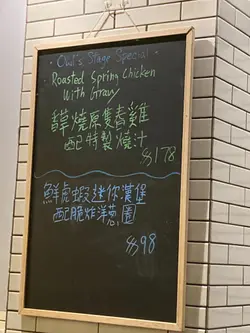 Owl's Stage Special
Roasted Spring Chicken
With Gravy
馥草燒原隻春雞
配特製燒汁
$178
鮮虎蝦迷你漢堡
配脆炸洋蔥圈
$98